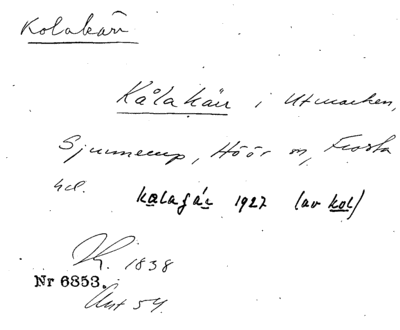 Kolakärr
Kålakärr i Utmarken,
Sjunnerup, Höör sn, Frosta
hd. kalagár 1927 (av kol)
K. 1838
Nr 6853.
Ant 54.